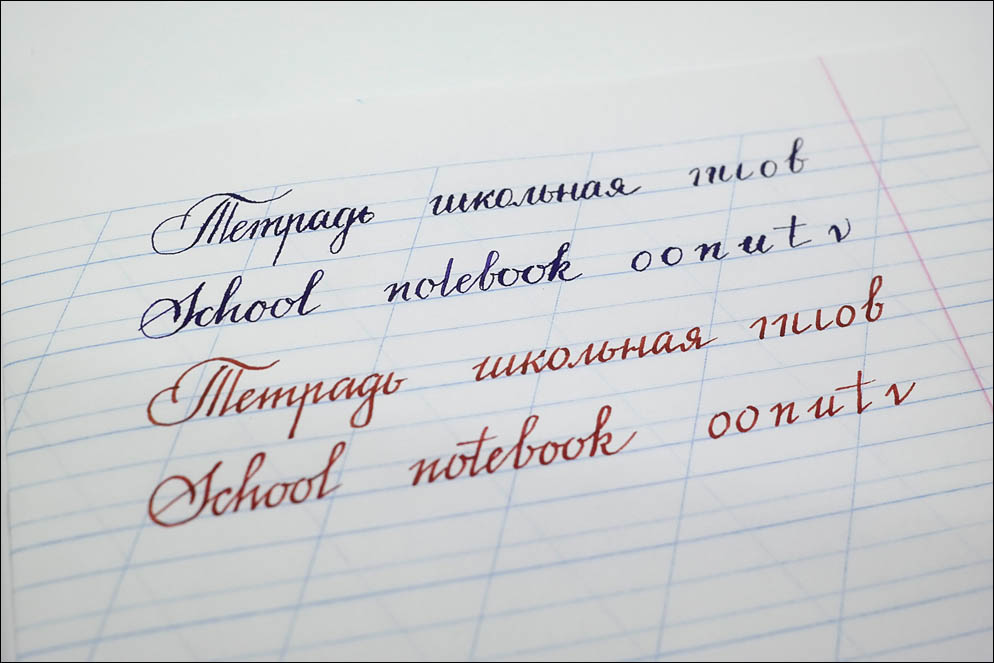 Тетрадь школьная тшов
School notebook o o n u t v
Тетрадь школьная тшов
School notebook o o n u t v